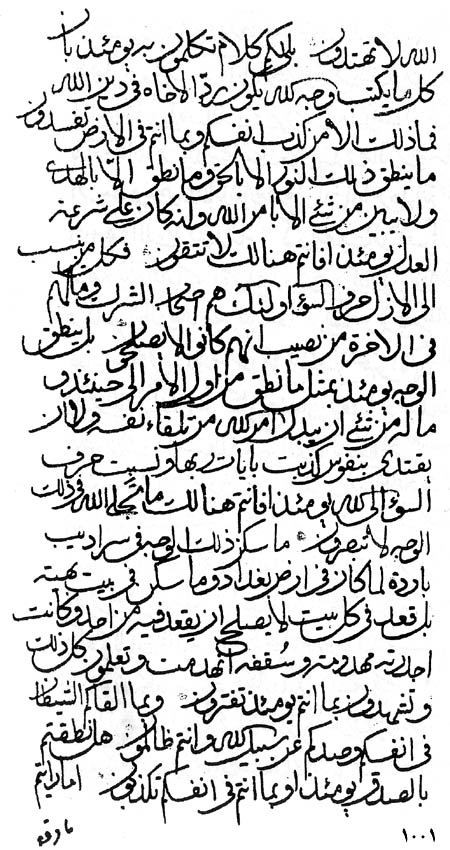 الله لا تهتدون بلى بلى كلام تكلمون به يومئذ بان
كل ما يكتب وجه الله يكون ردّ الاخاه فى دين الله
فما ذلك الأمر كذب انفسكم وبما انتم فى الارض تفسدون
ما ينطق ذلك النور الا بالحق وما نطق الّا بالهدى
ولا يبين من شئ الا بامر الله وانه كان على شرعة
العدل يومئذ افانتم هنالك لا تتقون فكل من ينسب
الى الازل حرف السؤ اولئك هم الشرك وما لهم
فى الاخرة من نصيب انهم كانوا لا يصلحون بل ينطق
الوجه يومئذ بمثل ما نطق من اول الأمر الى حينئذ و
ما له من شئ ان يبدل امر الله من تلقاء نفسه ولا ان
يقتدى بنفوس كذبت بايات ربها ونسبت حرف
السؤ الى الله يومئذ افانتم هنالك ما تجلى الله فى ذلك
الوجه لا تبصرون ما سكن ذلك الوجه فى سراديب
باردة لما كان فى ارض بغداد وما سكن فى بيت هيته
بل قعد فى كل بيت لا يصلح ان يقعد فيه من احد وكانت
اجدرته مهدومة وسُقفه انهدمت وتعلمون كل ذلك
وتشهدون بما انتم يومئذ تفترون وبما القاكم الشيطان
فى انفسكم وصدكم عن سبيل الله وانتم ظالمون هل نطقتم
بالصدق يومئذ او بما انتم فى انفسكم تكذبون اما رايتم
١٠٠١